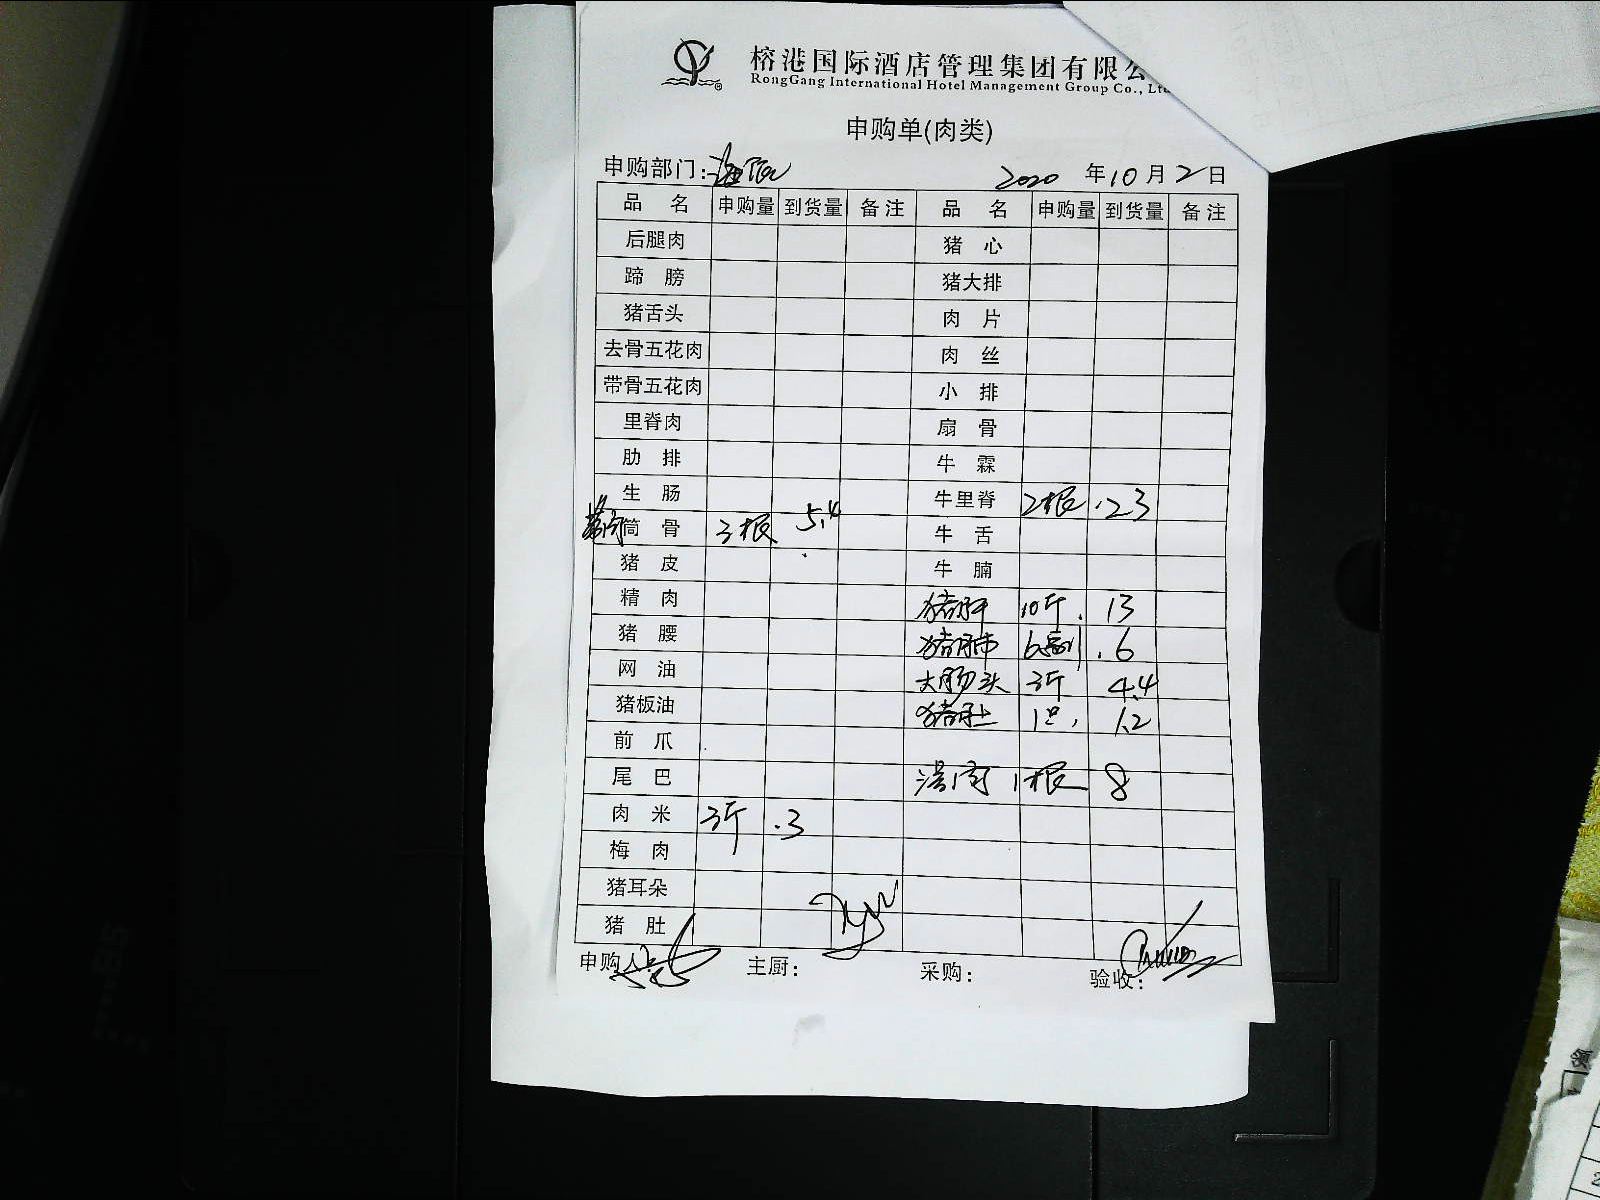 榕港国际酒店管理集团有限公
RongGang International Hotel Management Group Co., Ltd
申购单(肉类)
申购部门: 2020 年 10 月 2 日
品 名 申购量 到货量 备注 品 名 申购量 到货量 备注
后腿肉 猪 心
蹄 膀 猪大排
猪舌头 肉 片
去骨五花肉 肉 丝
带骨五花肉 小 排
里脊肉 扇 骨
肋 排 牛 霖
生 肠 牛里脊 2根 .23
筒 骨 3根 5.4 牛 舌
猪 皮 牛 腩
精 肉 猪肝 10斤. 13
猪 腰 猪肺 6副 .6
网 油 大肠头 3斤 4.4
猪板油 猪肚 1只, 1.2
前 爪
尾 巴 1根 8
肉 米 3斤 .3
梅 肉
猪耳朵
猪 肚
申购人 主厨: 采购: 验收: